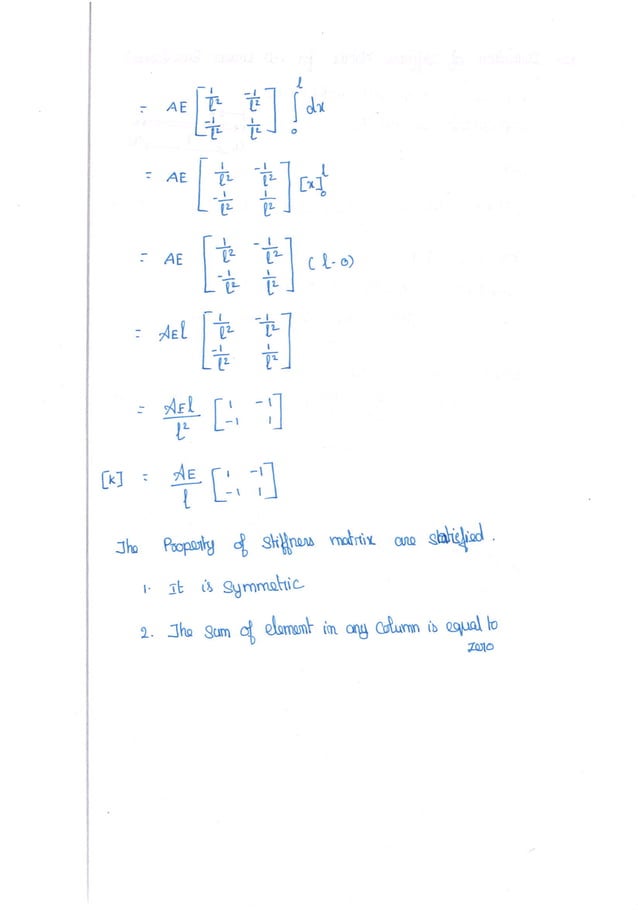 = AE [1/l² -1/l²; -1/l² 1/l²] ∫₀ˡ dx
= AE [1/l² -1/l²; -1/l² 1/l²] [x]₀ˡ
= AE [1/l² -1/l²; -1/l² 1/l²] (l-0)
= AEl [1/l² -1/l²; -1/l² 1/l²]
= AEl/l² [1 -1; -1 1]
[K] = AE/l [1 -1; -1 1]
The Property of Stiffness matrix are satisfied.
1. It is Symmetric
2. The Sum of element in any Column is equal to
zero